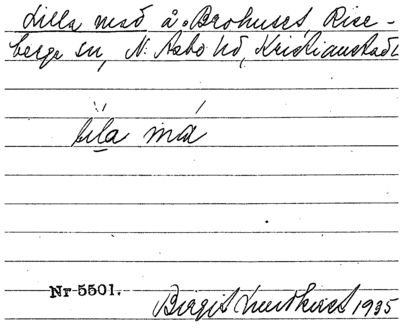 Lilla mad å Brohuset, Rise-
berga sn, N. Åsbo hd, Kristianstads
lilla má
Nr 5501.
Birgit 1935